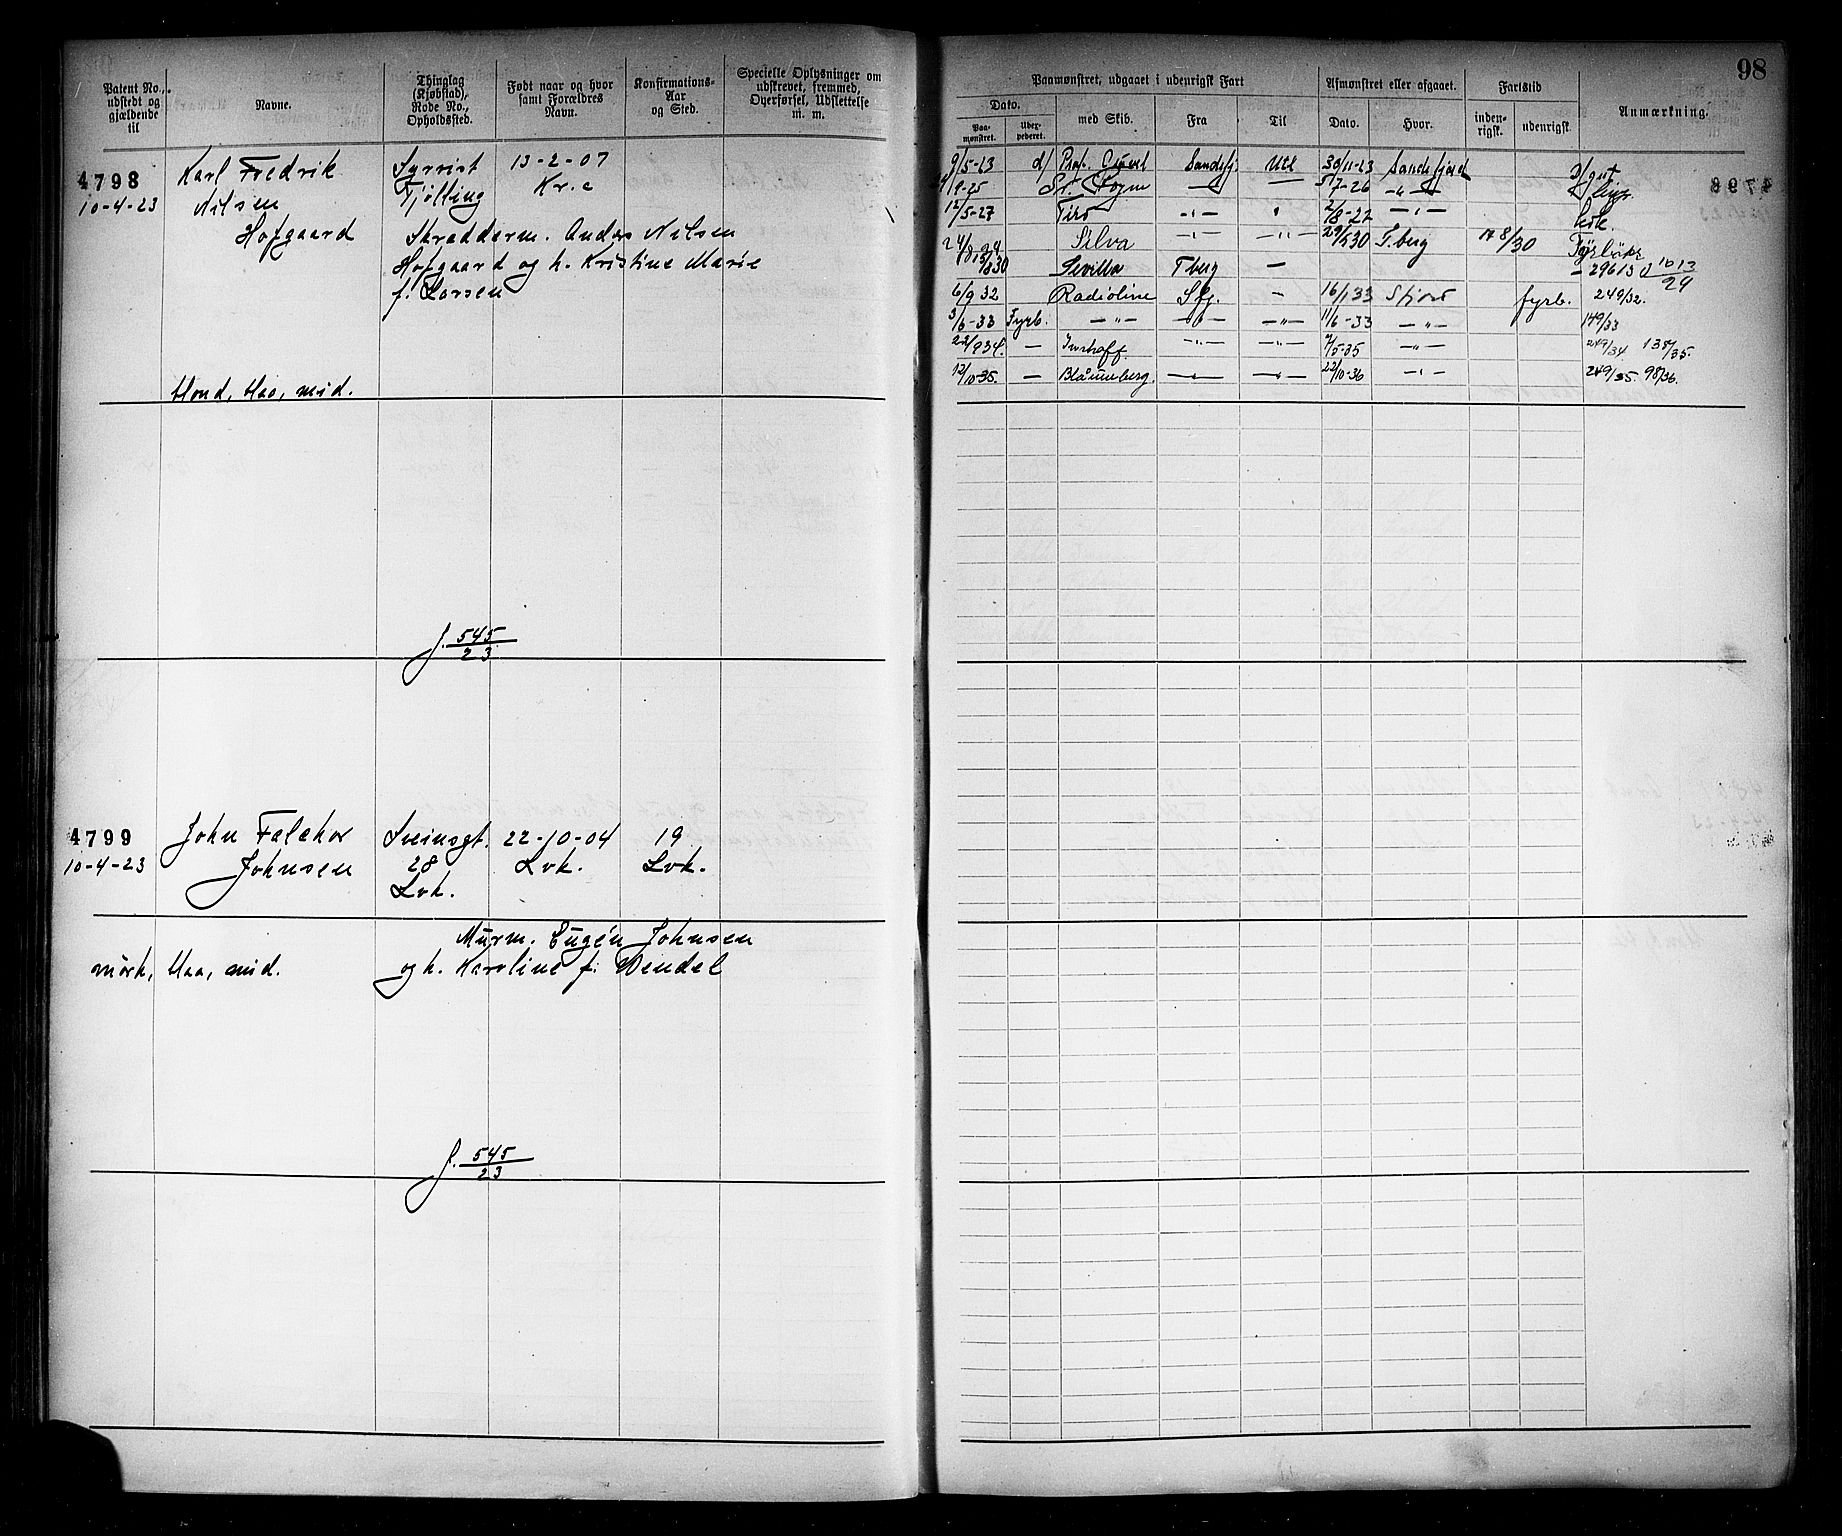 98
Patent No., udstedt og gjældende til
Navne.
Thinglag (Kjøbstad), Rode No., Opholdssted.
Født naar og hvor samt Forældres Navn.
Konfirmations-Aar og Sted.
Specielle Oplysninger om udskrevet, fremmed, Overførsel, Udslettelse m. m.
Paamønstret, udgaaet i udenrigsk Fart
Dato.
Paa-mønstret.
med Skib.
Fra
Til
Afmønstret eller afgaaet.
Dato.
Hvor.
Fartstid
inden-rigsk.
udenrigsk.
Anmærkning.
4798
10-4-23
Karl Fredrik
Nilsen
Hofgaard
Tjølling
13-2-07
Kr.a
Skrædderm. Anders Nilsen
Hofgaard og h. Kristine Marie
f. Larsen
blond, blaa, mid.
J. 545/23
9/5-23 d/ Prof. Gruvel Sandefj. Utl 30/11-23 Sandefjord
9-25 5/7-26 — " —
12/5-27 — " — 2/8-27 — " —
24/8 29 Silva — " — — " — 29/5 30 T.berg 17 8/30
15/8 30 Sevilla T berg — — 296 13
6/9 32 Radioline Sfj. — 16/1 33 Sfjord fyrb. 249/32.
3/6-33 Fyrb. — " — — " — — " — 11/6-33 — " — 149/33
22/9 34. — — " — — " — 7/5-35 — " — 249/34 138/35.
12/10-35. — — " — — " — 22/10-36 — " — 249/35. 98/36.
4799
10-4-23
John Falchor
Johnsen
Sveinsgt.
28
Lvk.
22-10-04
Lvk.
19
Lvk.
Murm. Eugén Johnsen
og h. Karoline f. Wendel
mörk, blaa, mid.
J. 545/23